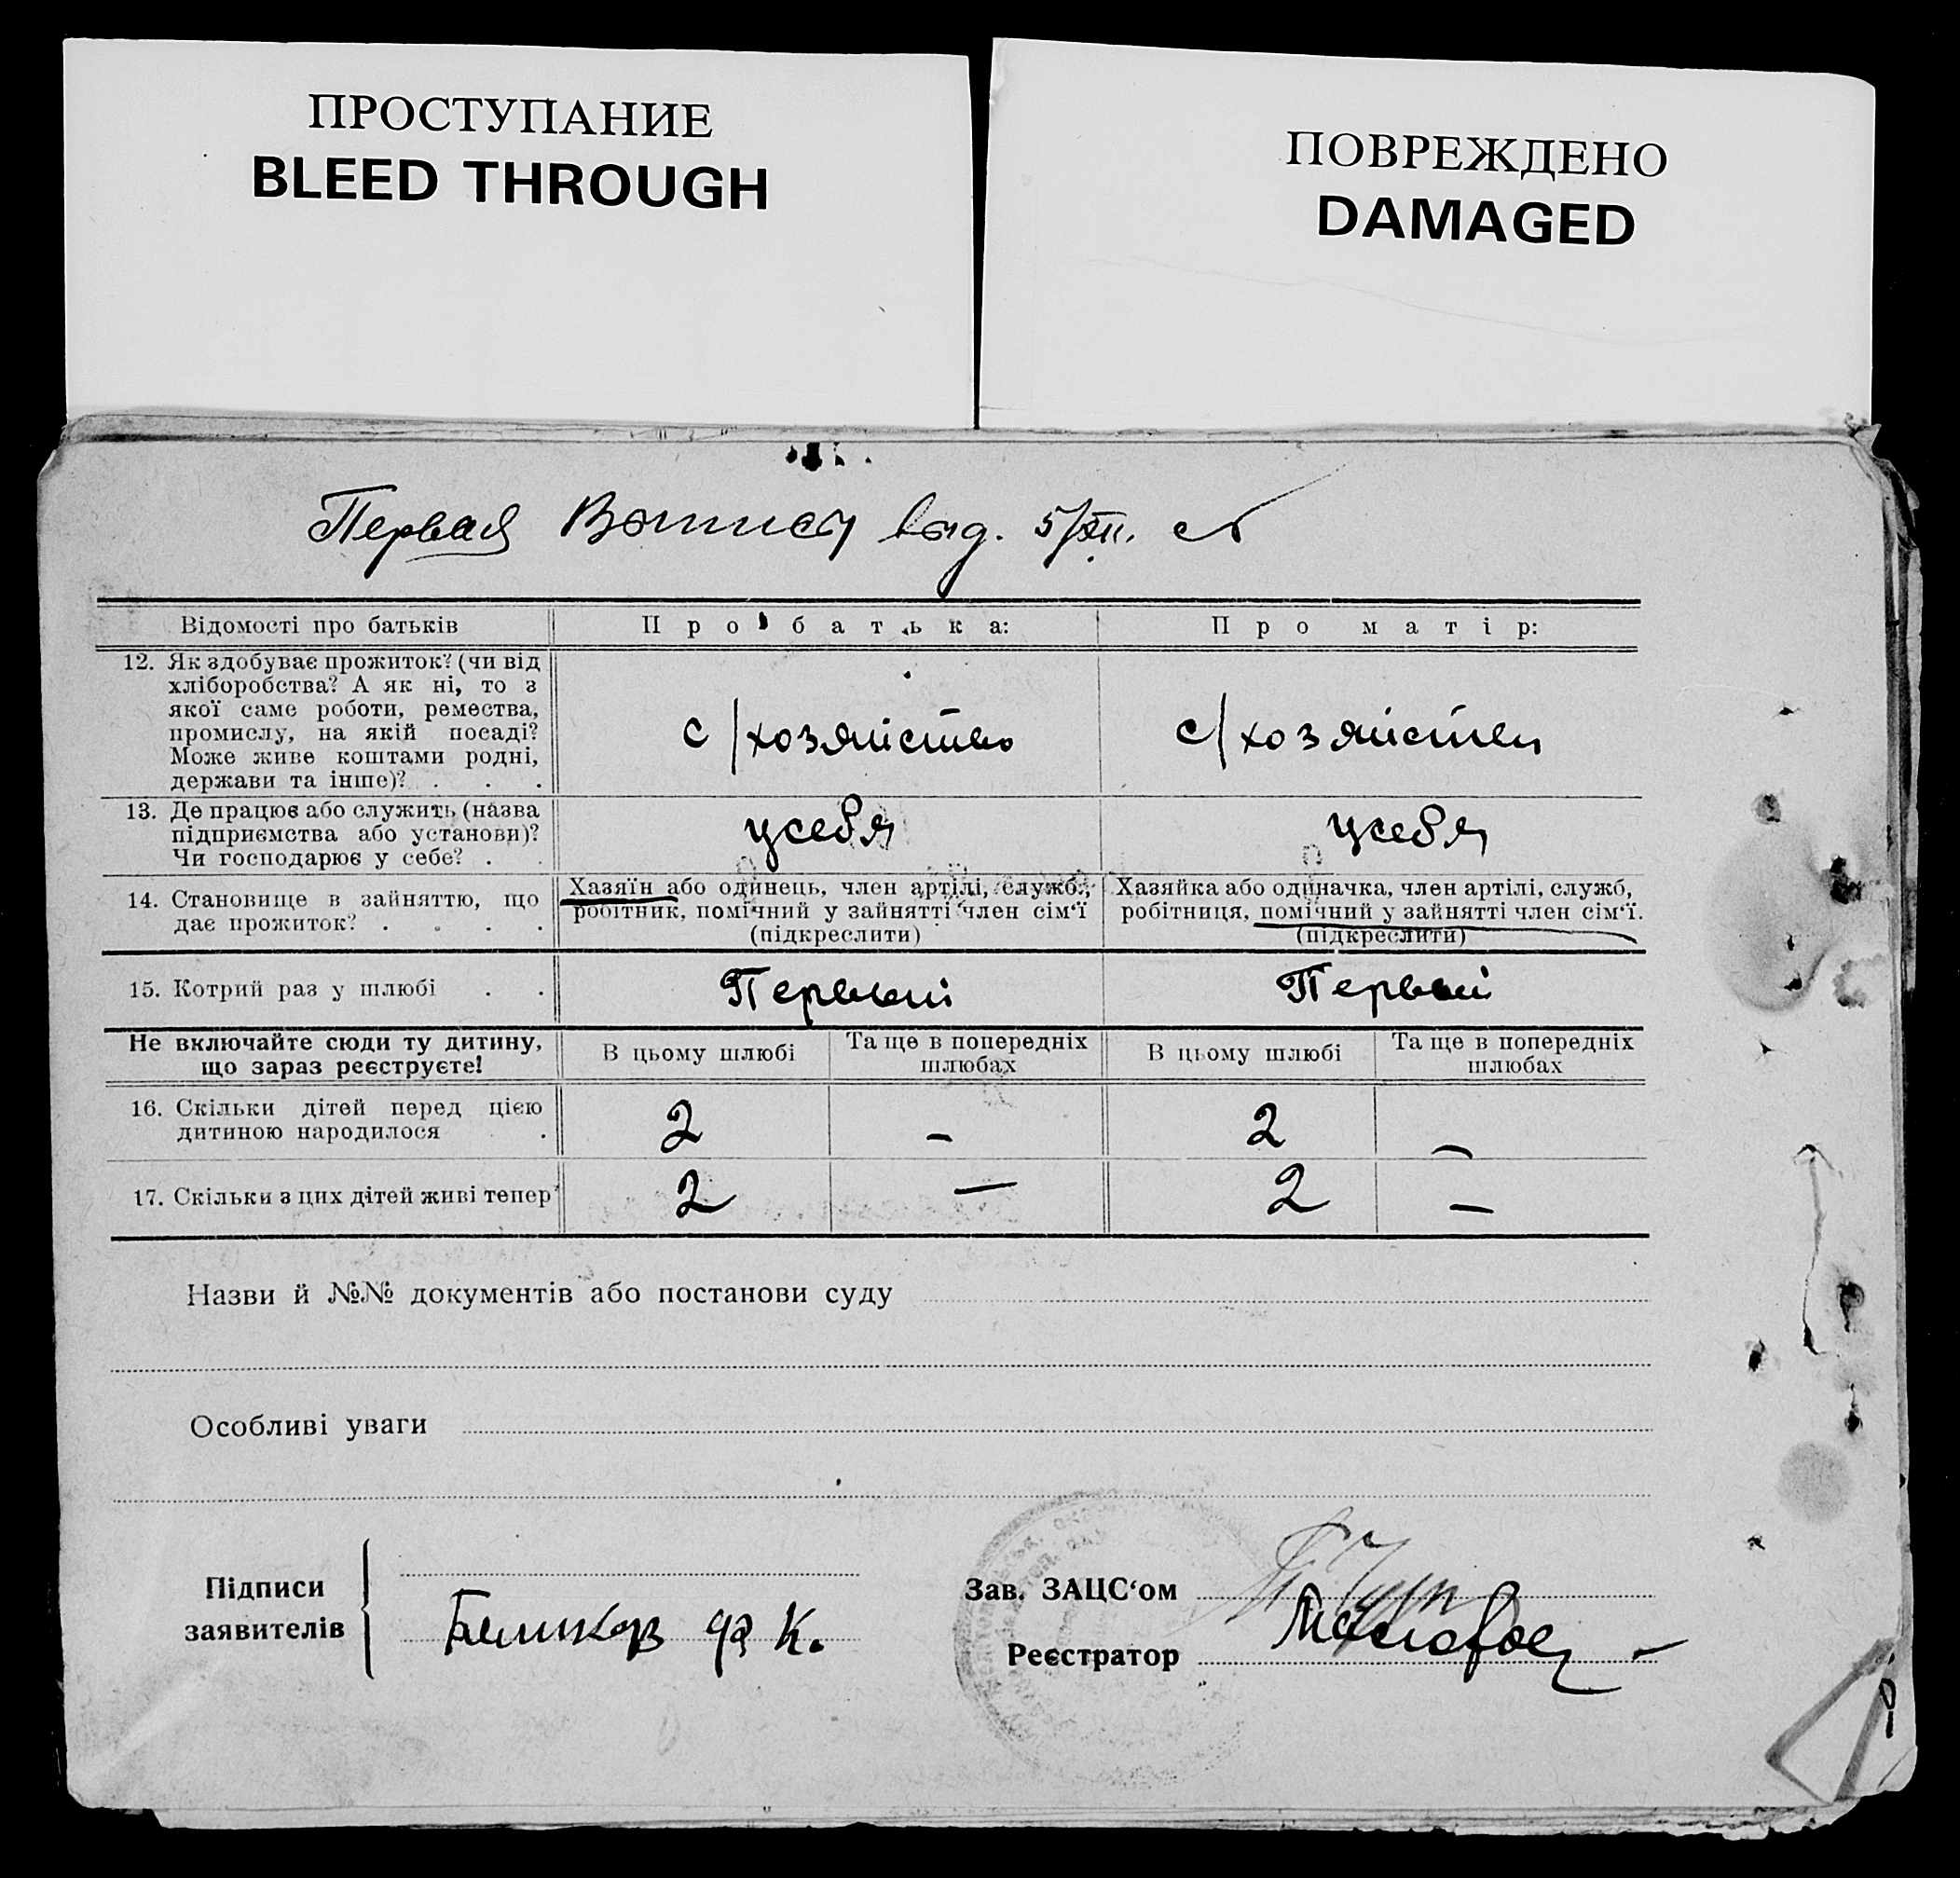 ПРОСТУПАНИЕ
BLEED THROUGH
ПОВРЕЖДЕНО
DAMAGED
Первая Вопись выд. 5/XII.
Відомості про батьків
Про батька:
Про матір:
12. Як здобуває прожиток? (чи від
хліборобства? А як ні, то з
якої саме роботи, ремества,
промислу, на якій посаді?
Може живе коштами родні,
держави та інше)? . . .
с/хозяйство
с/хозяйство
13. Де працює або служить (назва
підприємства або установи)?
Чи господарює у себе? . .
усебя
усебя
14. Становище в зайняттю, що
дає прожиток? . . . .
Хазяїн або одинець, член артілі, служб.,
робітник, помічний у зайнятті член сім'ї
(підкреслити)
Хазяйка або одиначка, член артілі, служб,
робітниця, помічний у зайнятті член сім'ї.
(підкреслити)
15. Котрий раз у шлюбі . .
Первый
Первый
Не включайте сюди ту дитину,
що зараз реєструєте!
В цьому шлюбі
Та ще в попередніх
шлюбах
В цьому шлюбі
Та ще в попередніх
шлюбах
16. Скільки дітей перед цією
дитиною народилося .
2
–
2
–
17. Скільки з цих дітей живі тепер
2
—
2
–
Назви й №№ документів або постанови суду
Особливі уваги
Підписи
заявителів
Беликов Ф К.
Зав. ЗАЦС'ом
Реєстратор